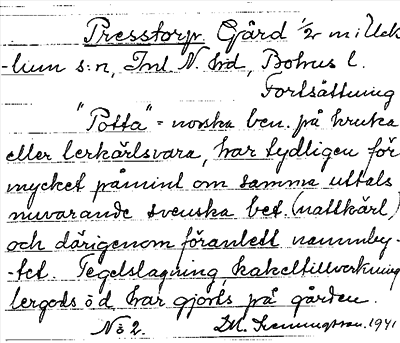 Presstorp. Gård 1/2 m i Uck-
-lum s:n, Inl. N. hd, Bohus l.
Fortsättning
"Potta" = norska ben. på kruka
eller lerkärlsvara, har tydligen för
mycket påmint om samma uttals
nuvarande svenska bet. (nattkärl)
och därigenom föranlett namnby-
-tet. Tegelslagning, kakeltillverkning
lergods o d, har gjorts på gården.
No 2. 1941